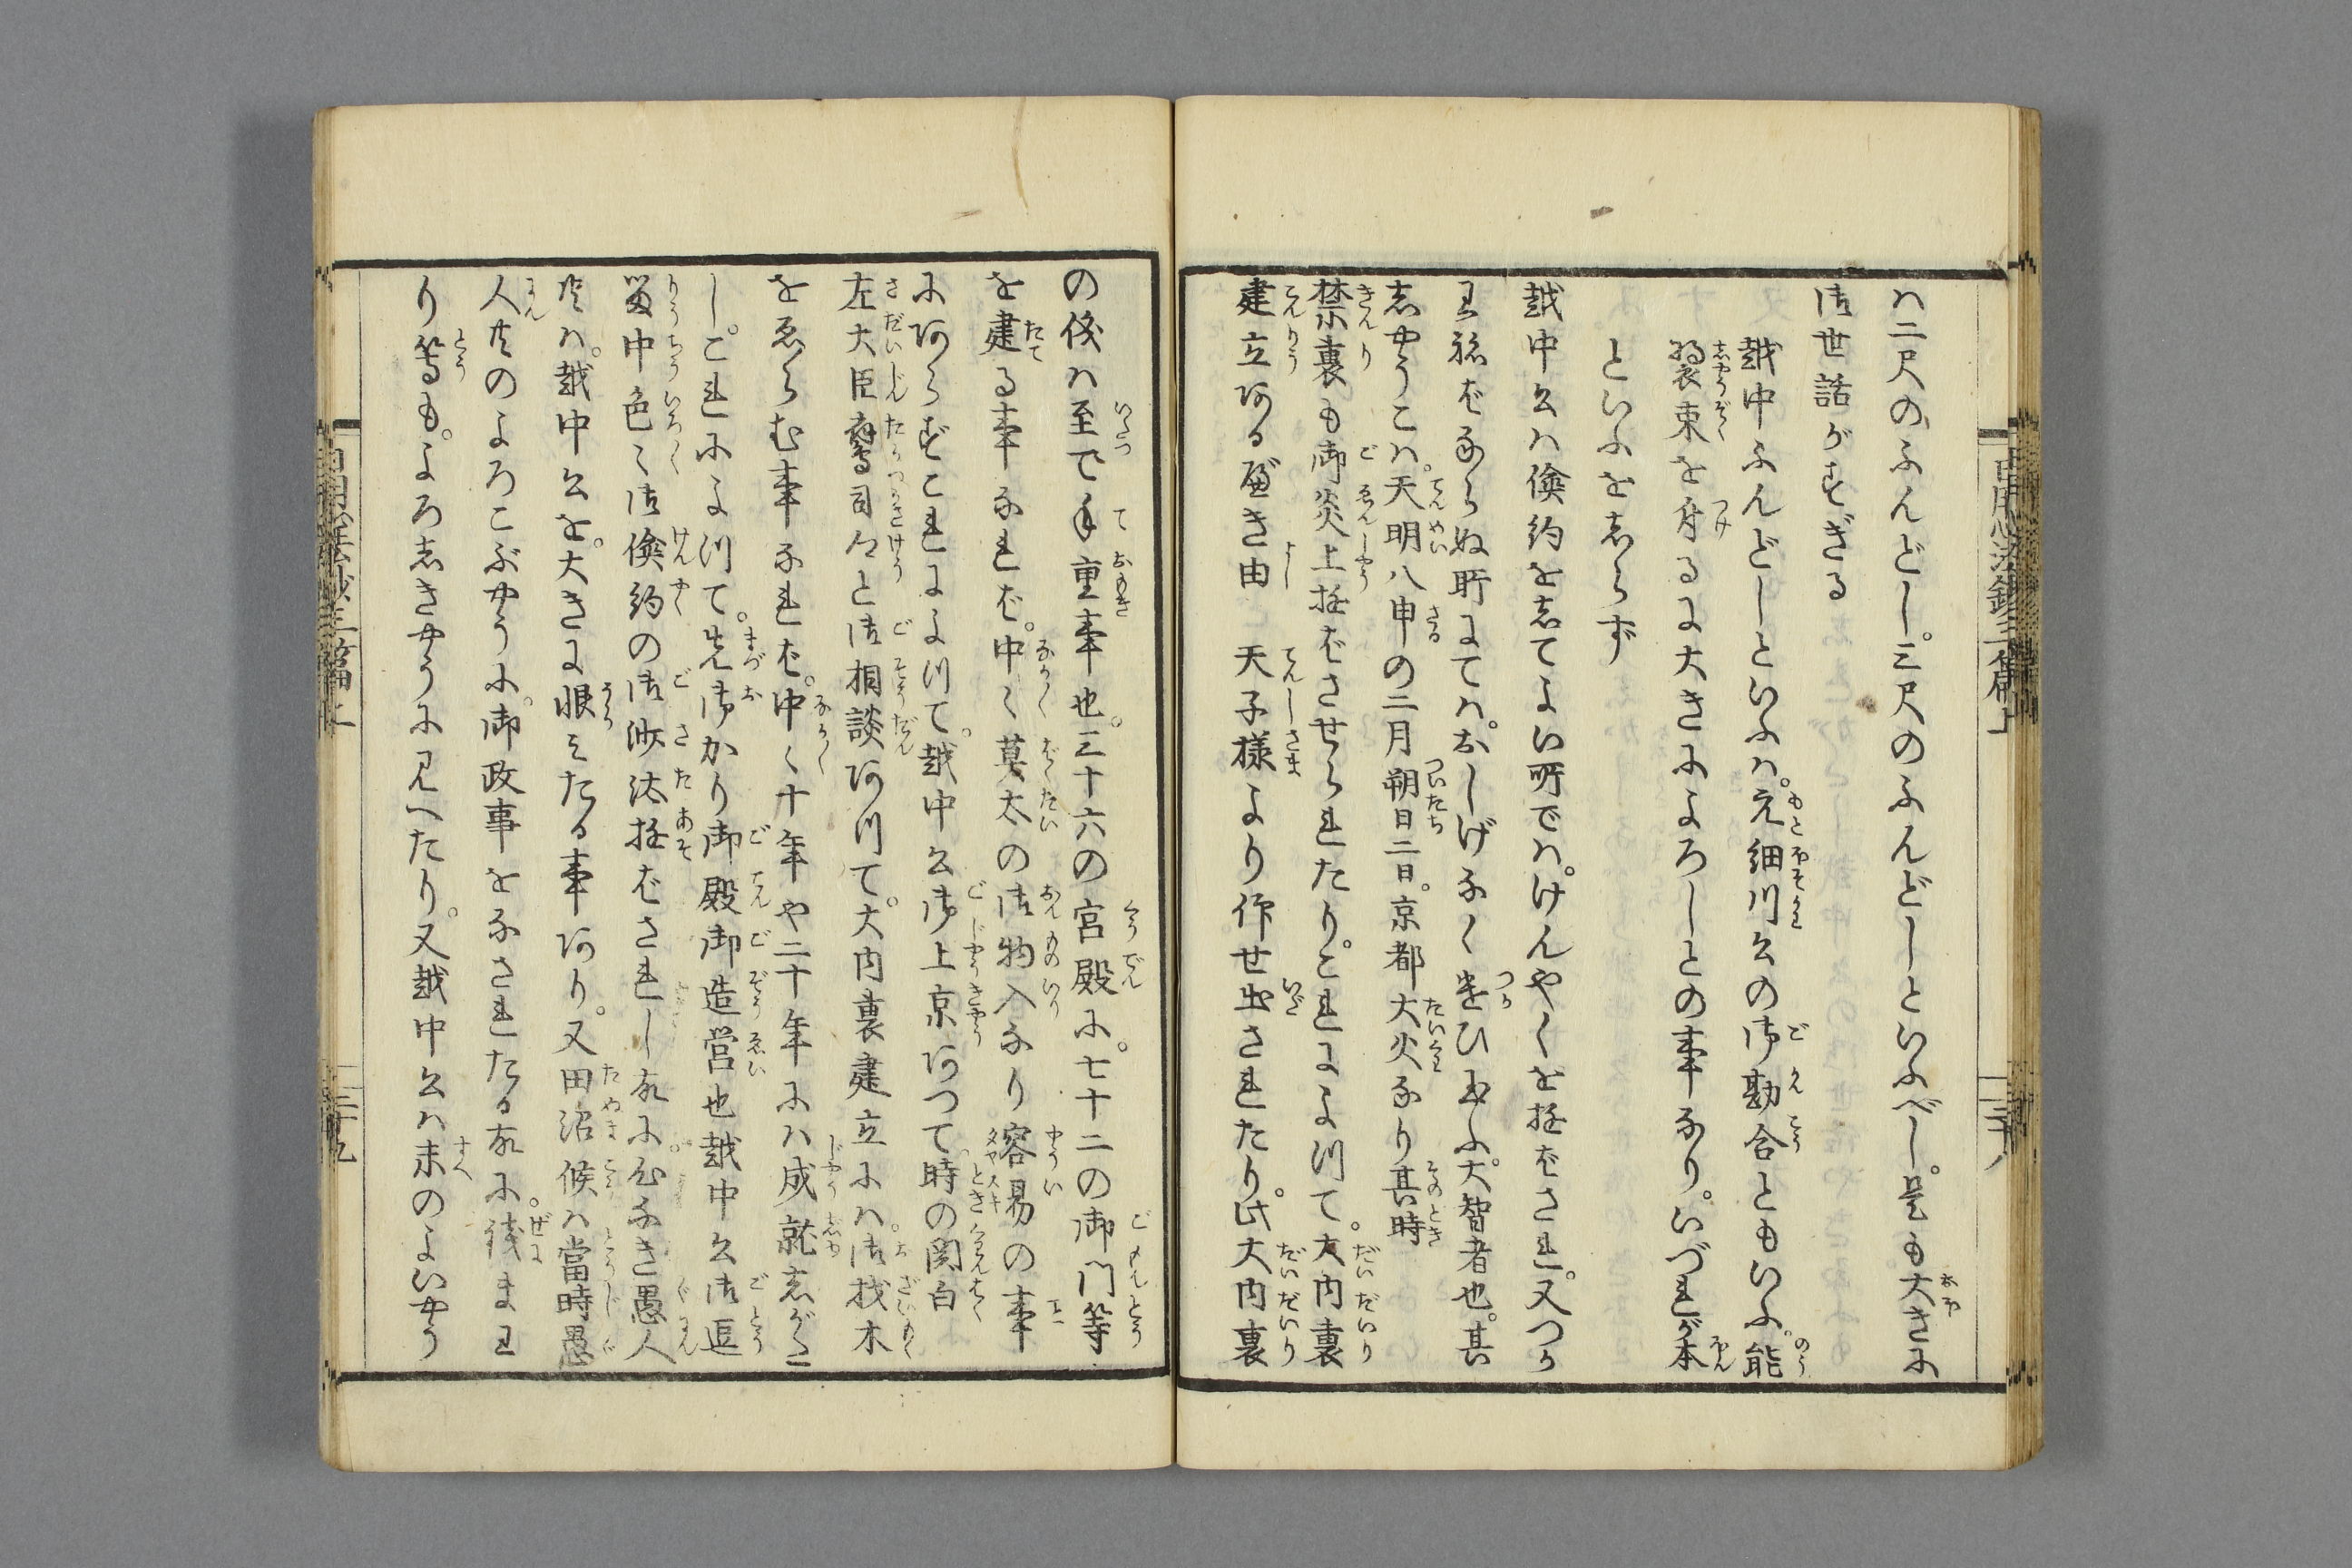 ハ二尺のふんどし。三尺のふんどしといふべし。是も大きに
御世話がすぎる
越中ふんどしといふハ。元細川公の御勘合ともいふ。能
装束を身るに大きによろしとの事なり。いづれが本
といふを志らず
越中公ハ倹約を志てよい所でハ。けんやくを遊ばされ。又つか
わねばならぬ所にてハ。おしげなく遣ひ玉ふ。大智者也。其
志やうこハ。天明八申の二月朔日二日。京都大火なり其時
禁裏も御炎上遊ばさせられたり。これによつて。大内裏
建立あるべき由 天子様より作せ出されたり。此大内裏
の儀ハ至て手重事也。三十六の宮殿に。七十二の御門等
を建る事なれば。中〱莫大の御物入なり容易の事
にあらずこれによつて。越中公御上京あつて。時の関白
左大臣鷹司公と御相談あつて。大内裏建立にハ。御材木
をゑらむ事なれば。中〱十年や二十年にハ成就志がた
し。これによつて。先御かり御殿御造営也越中公御逗
留中色〱御倹約の御沙汰遊ばされし故に。心なき愚人
共ハ。越中公を。大きに恨みたる事あり。又田沼候ハ當時愚
人共のよろこぶやうに。御政事をなされたる故に。銭まわ
り等も。よろ志きやうに見へたり。又越中公ハ末のよいやう
三十八
三十九